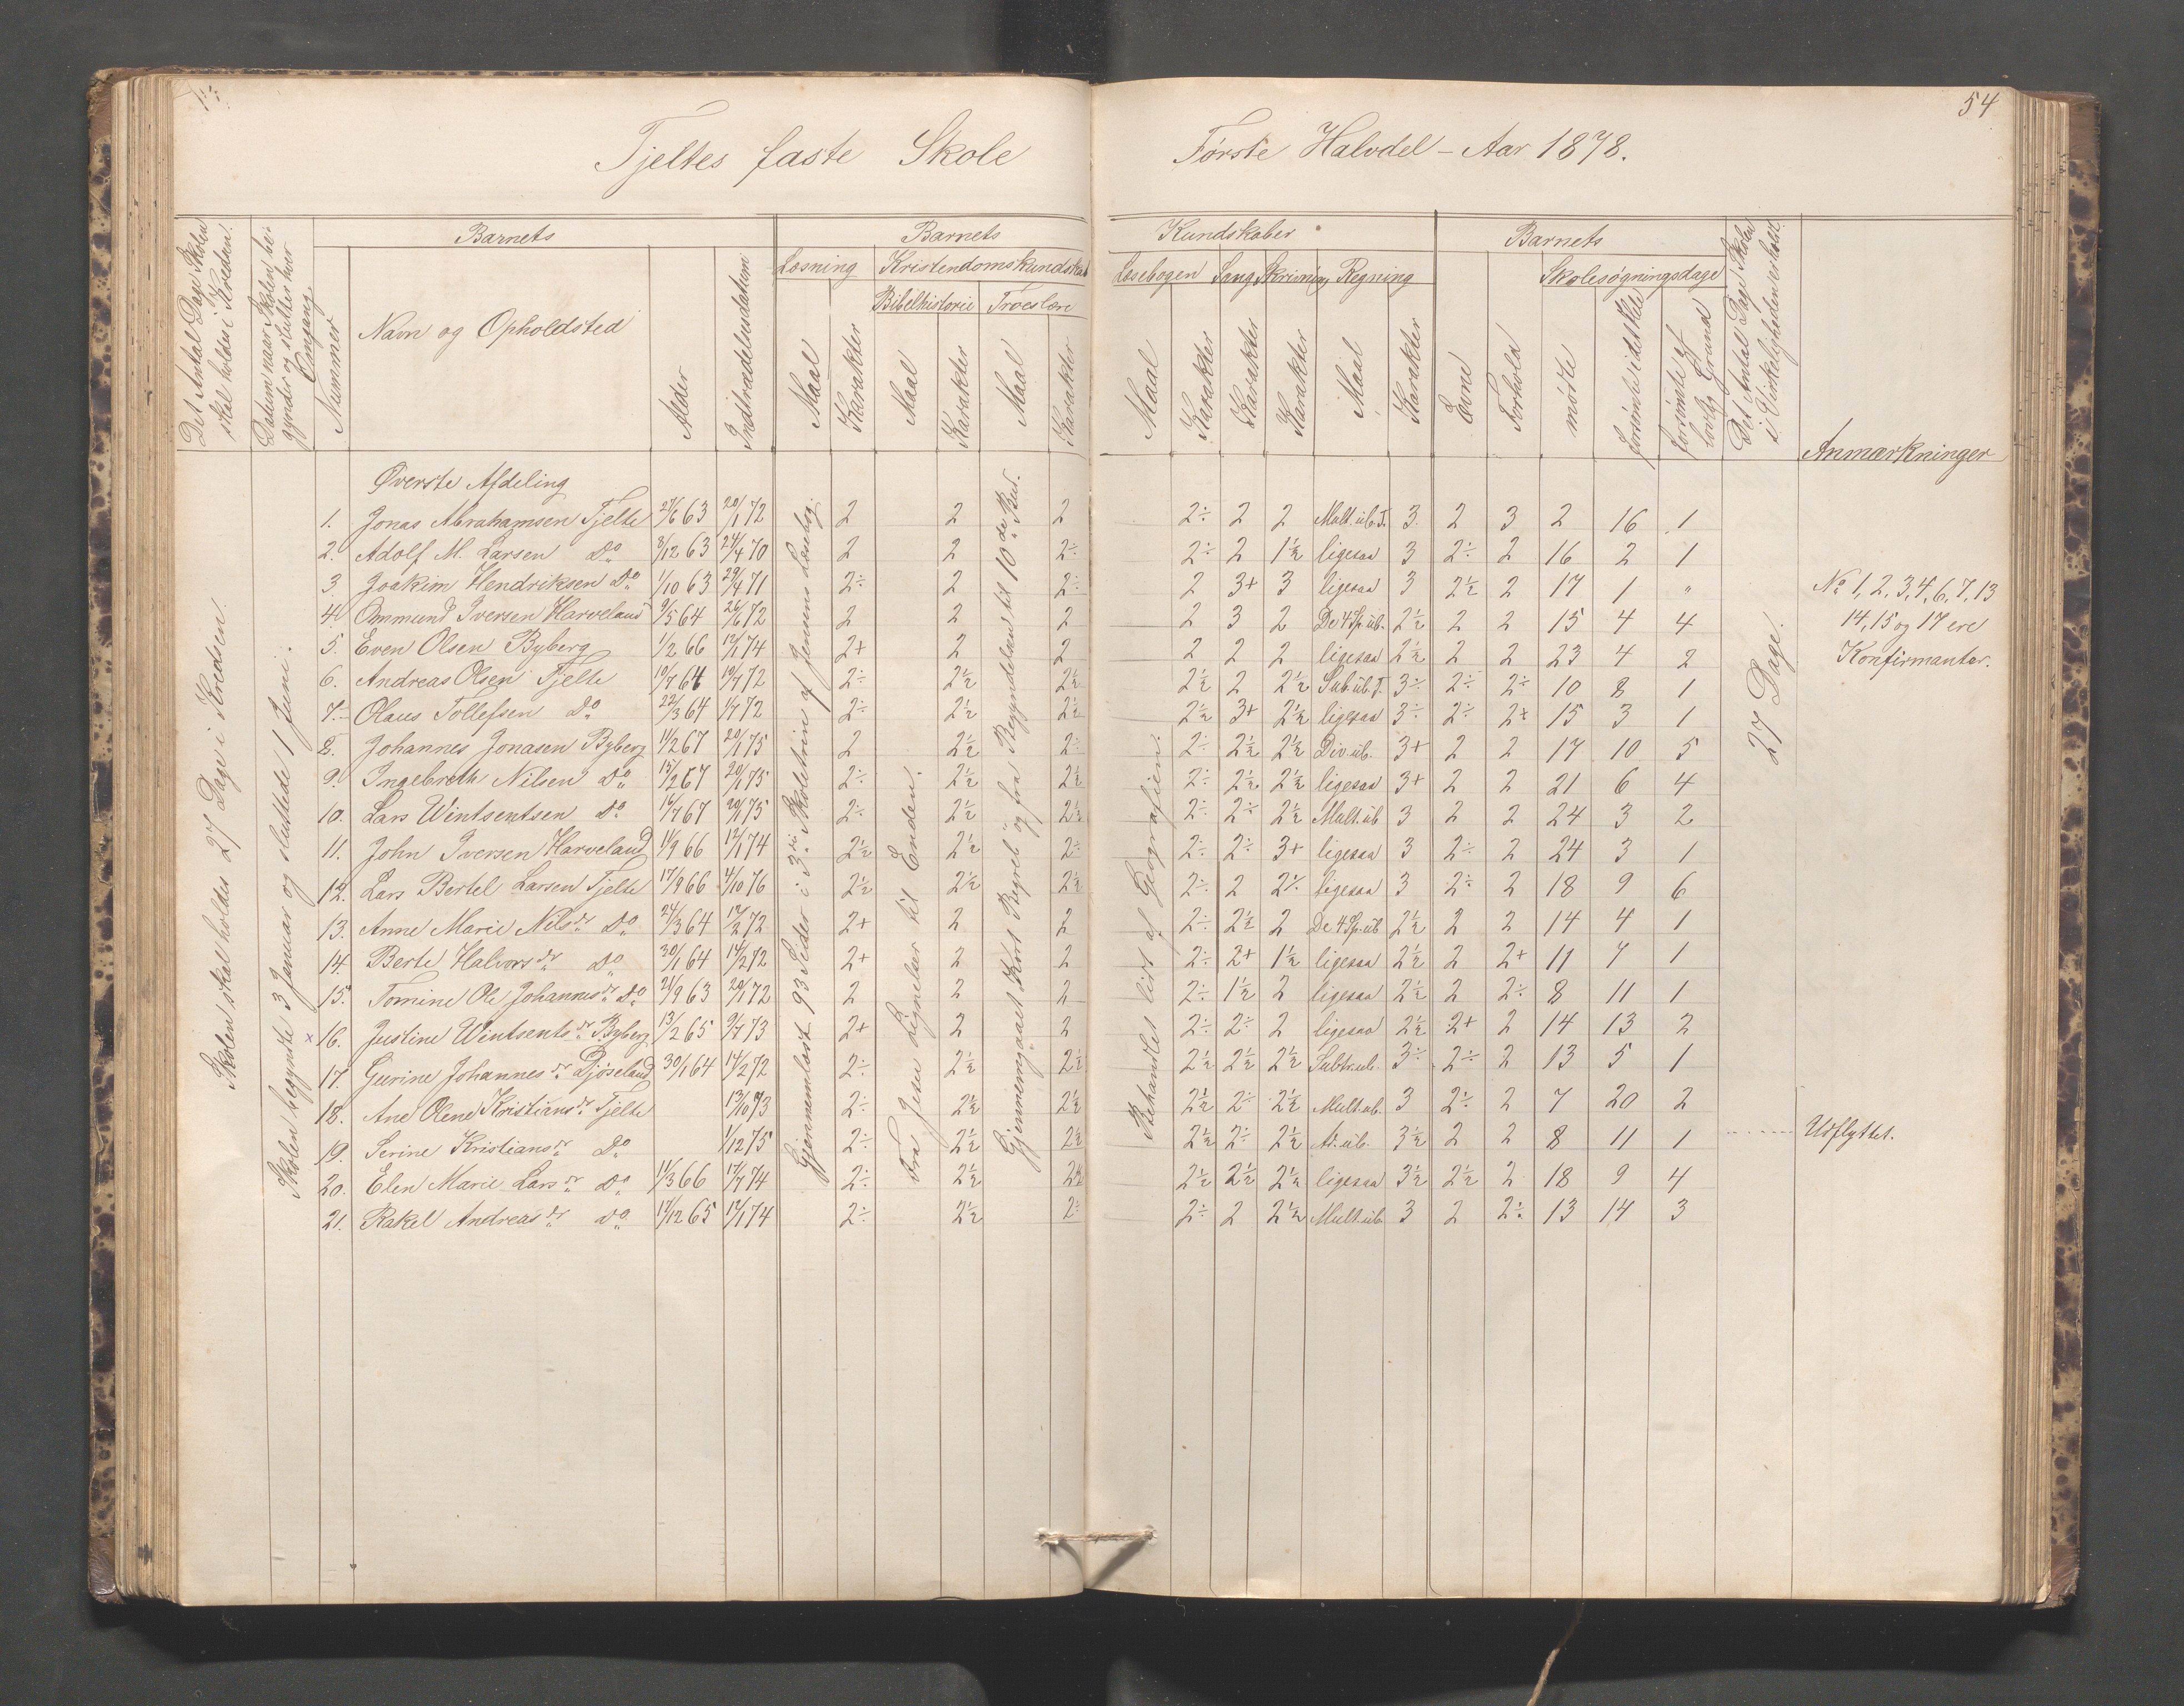 54
Tjeltes faste Skole
Første Halvdel-Aar 1878.
Det Antal Dage Skolen skal holdes i Kredsen.
Datum naar Skolen begynder og slutter hver Omgang
Nummer
Barnets
Navn og Opholdsted
Alder
Indtrædelsesdatum
Barnets
Læsning
Kristendomskundskab
Bibelhistorie
Troeslære
Maal
Karakter
Maal
Karakter
Maal
Karakter
Kundskaber
Læsebogen Sang Skrivning Regning
Maal
Karakter
Karakter
Karakter
Maal
Karakter
Barnets
Skolesøgningsdage
Evne
Forhold
mødte
forsømte i det Hele
forsømte af lovlig Grund
Det Antal Dage Skolen i Virkeligheden er holdt.
Anmærkninger
Skolen skal holdes 27 Dage i Kredsen.
Skolen begynte 3 Januar og sluttede 1 Juni.
Gjennemlæst 93 Sider i 3die Skoletrin af Jensens Læsebog
Fra Jesu Lignelser til Enden.
Gjennemgaaet Kort Begreb og fra Begyndelsen til 10de Bud.
Behandlet lidt af Geografien.
27 Dage.
Øverste Afdeling
1. Jonas Abrahamsen Tjelte 27/6 63 20/1 72 2 2 2 2÷ 2 2 Mult. üb. T. 3 2 3 2 16 1
2. Adolf M. Larsen Do 8/12 63 24/4 70 2 2 2÷ 2÷ 2 1½ ligesaa 3 2÷ 2 16 2 1
3. Joakim Hendriksen Do 1/10 63 29/4 71 2÷ 2 2÷ 2 3+ 3 ligesaa 3 2½ 2 17 1 "
4. Ommund Iversen Harveland 9/5 64 26/6 72 2 2 2 2 3 2 De 4 Sp. üb. 2½ 2 2 15 4 4
5. Even Olsen Byberg 1/2 66 12/1 74 2+ 2 2 2 2 2 ligesaa 2½ 2 2 23 4 2
6. Andreas Olsen Tjelte 10/7 64 10/7 72 2÷ 2½ 2½ 2½ 2 2½ Sub. üb. T. 3÷ 2÷ 2÷ 10 8 1
7. Olaus Tollefsen Do 22/3 64 1/7 72 2÷ 2½ 2½ 2½ 3+ 2½ ligesaa 3÷ 2÷ 2+ 15 3 1
8. Johannes Jonasen Byberg 14/2 67 20/1 75 2 2½ 2÷ 2÷ 2½ 2½ Div. üb. 3+ 2 2 17 10 5
9. Ingebreth Nilsen Do 15/2 67 20/1 75 2÷ 2½ 2½ 2÷ 2½ 2½ ligesaa 3+ 2 2 21 6 4
10. Lars Wintsentsen Do 16/7 67 20/1 75 2÷ 2½ 2½ 2÷ 2÷ 2½ Mult. üb 3 2 2 24 3 2
11. John Iversen Harveland 11/9 66 12/1 74 2½ 2½ 2÷ 2÷ 2÷ 3+ ligesaa 3 2÷ 2 24 3 1
12. Lars Bertel Larsen Tjelte 17/9 66 4/10 76 2½ 2½ 2½ 2÷ 2 2÷ ligesaa 3 2÷ 2 18 9 6
13. Anne Marie Nilsdr Do 24/3 64 12/2 72 2+ 2 2 2÷ 2½ 2 De 4 Sp. üb 2½ 2 2 14 4 1
14. Berte Halvorsdr Do 30/1 64 14/2 72 2+ 2 2 2÷ 2+ 1½ ligesaa 2½ 2 2+ 11 7 1
15. Tomine Ole Johannesdr Do 21/9 63 20/1 72 2 2 2 2÷ 1½ 2 ligesaa 2½ 2 2÷ 8 11 1
× 16. Justine Wintsentsdr Byberg 13/2 65 9/7 73 2+ 2 2 2÷ 2÷ 2 ligesaa 2½ 2+ 2 14 13 2
17. Gurine Johannesdr Djøseland 30/1 64 14/2 72 2÷ 2½ 2½ 2½ 2½ 2½ Subtr. üb. 3÷ 2÷ 2 13 5 1
18. Ane Olene Kristiansdr Tjelte 13/10 73 2÷ 2½ 2½ 2½ 2÷ 2½ Mult. üb. 3 2÷ 2 7 20 2
19. Serine Kristiansdr Do 1/12 75 2÷ 2½ 2½ 2½ 2÷ 2½ Ad. üb. 3½ 2 2 8 11 1 Udflyttet.
20. Elen Marie Larsdr Do 11/3 66 17/7 74 2÷ 2½ 2½ 2½ 2½ 2½ ligesaa 3½ 2½ 2 18 9 4
21. Rakel Andreasdr Do 17/12 65 12/1 74 2÷ 2½ 2÷ 2÷ 2 2½ Mult. üb. 3 2 2÷ 13 14 3
No 1, 2, 3, 4, 6, 7, 13
14, 15 og 17 ere
Konfirmanter.